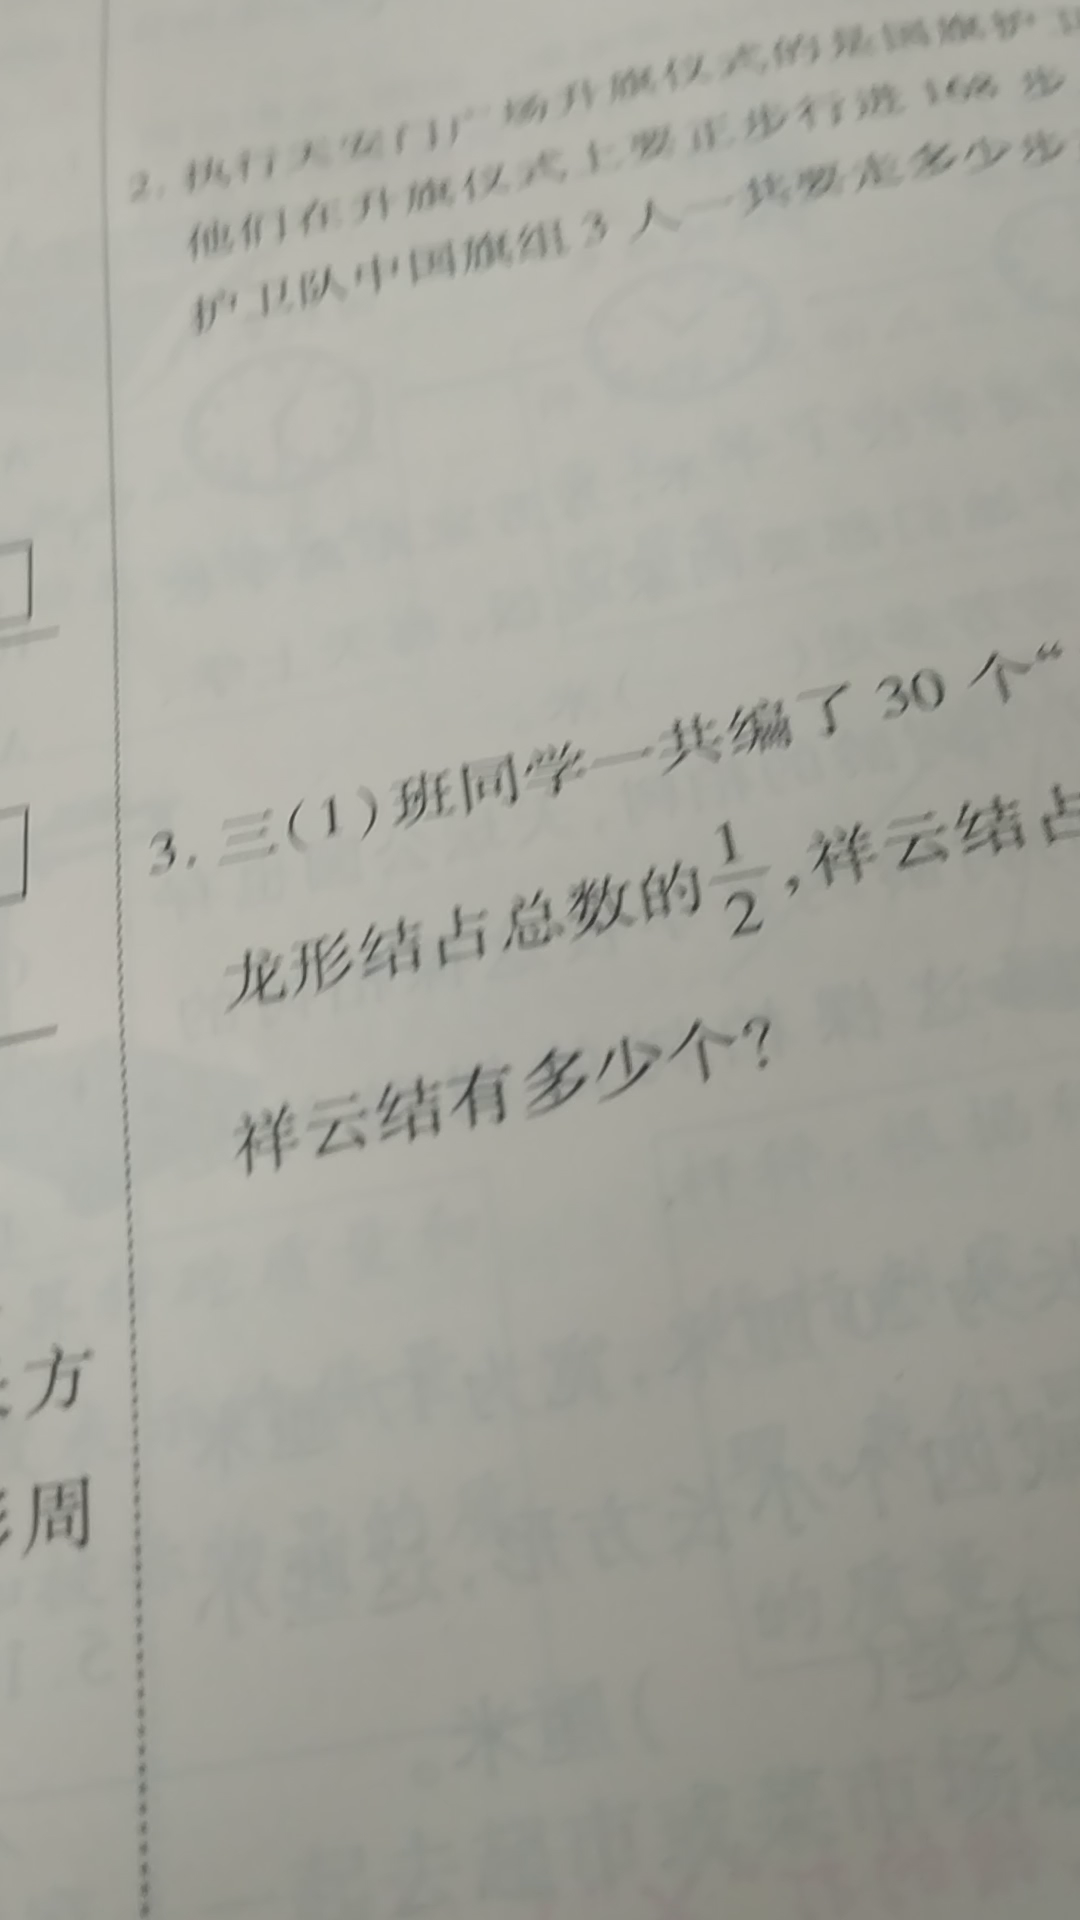 2. 执行天安门广场升旗仪式的是国旗护卫
他们在升旗仪式上要正步行进 168 步
护卫队中国旗组 3 人一共要走多少步
3. 三(1)班同学一共编了 30 个“
龙形结占总数的1/2,祥云结占
祥云结有多少个?
方
周